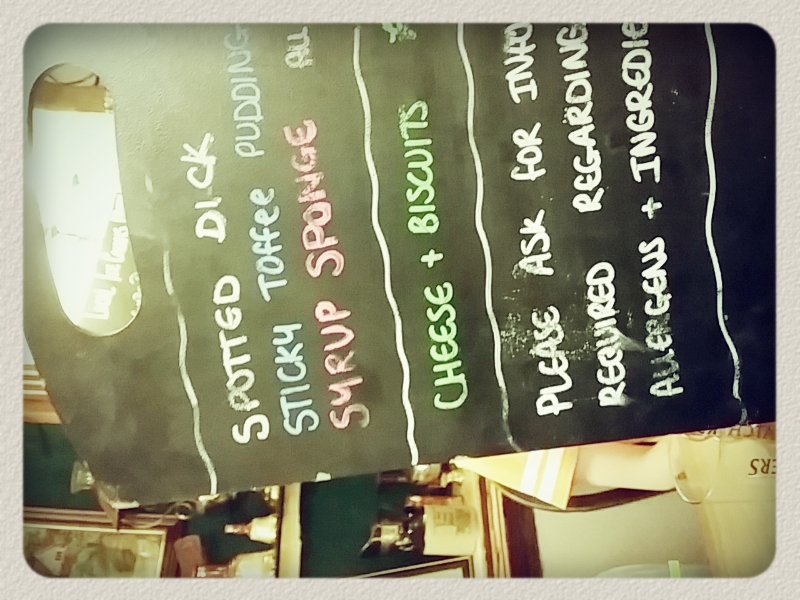 SPOTTED DICK
STICKY TOFFEE PUDDING
SYRUP SPONGE ALL
CHEESE + BISCUITS
PLEASE ASK FOR INFO
REQUIRED REGARDING
ALLERGENS + INGREDIE